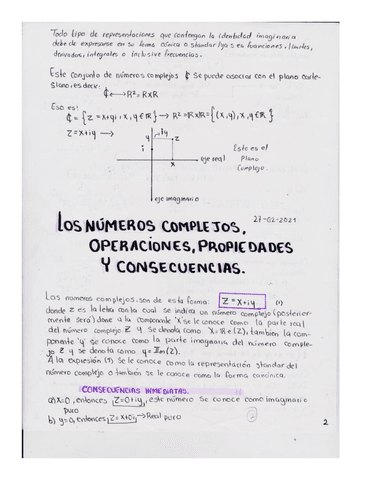 Todo tipo de representaciones que contengan la identidad imaginaria
debe de expresarse en su forma cónica o standar (ya sea funciones, límites,
derivadas, integrales o inclusive frecuencias.
Este conjunto de números complejos ₵ se puede asociar con el plano carte-
siano, es decir:
₵ ⟷ R² = RxR
Eso es:
₵ = { Z = x+yi, x, y ∈ R } ⟶ R² = RxR = {(x,y), x,y ∈ R}
Z = x+iy ⟶
y
z
i
x
eje real
Este es el
Plano
Complejo.
eje imaginario
27-02-2021
LOS NÚMEROS COMPLEJOS,
OPERACIONES, PROPIEDADES
Y CONSECUENCIAS.
Los números complejos son de esta forma: Z = x+iy (1)
donde z es la letra con la cual se indica un número complejo (posterior-
mente será) done a la componente 'x' se le conoce como la parte real
del número complejo Z y se denota como X=Re(Z), también la com-
ponente 'y' se conoce como la parte imaginaria del número comple-
jo Z y se denota como y = Im(Z).
A la expresión (1) se le conoce como la representación standar del
número complejo o también se le conoce como la forma canónica.
CONSECUENCIAS INMEDIATAS.
a) x=0, entonces Z=0+iy, este número se conoce como imaginario
puro
b) y=0, entonces Z=x+0iy → Real puro
2
2